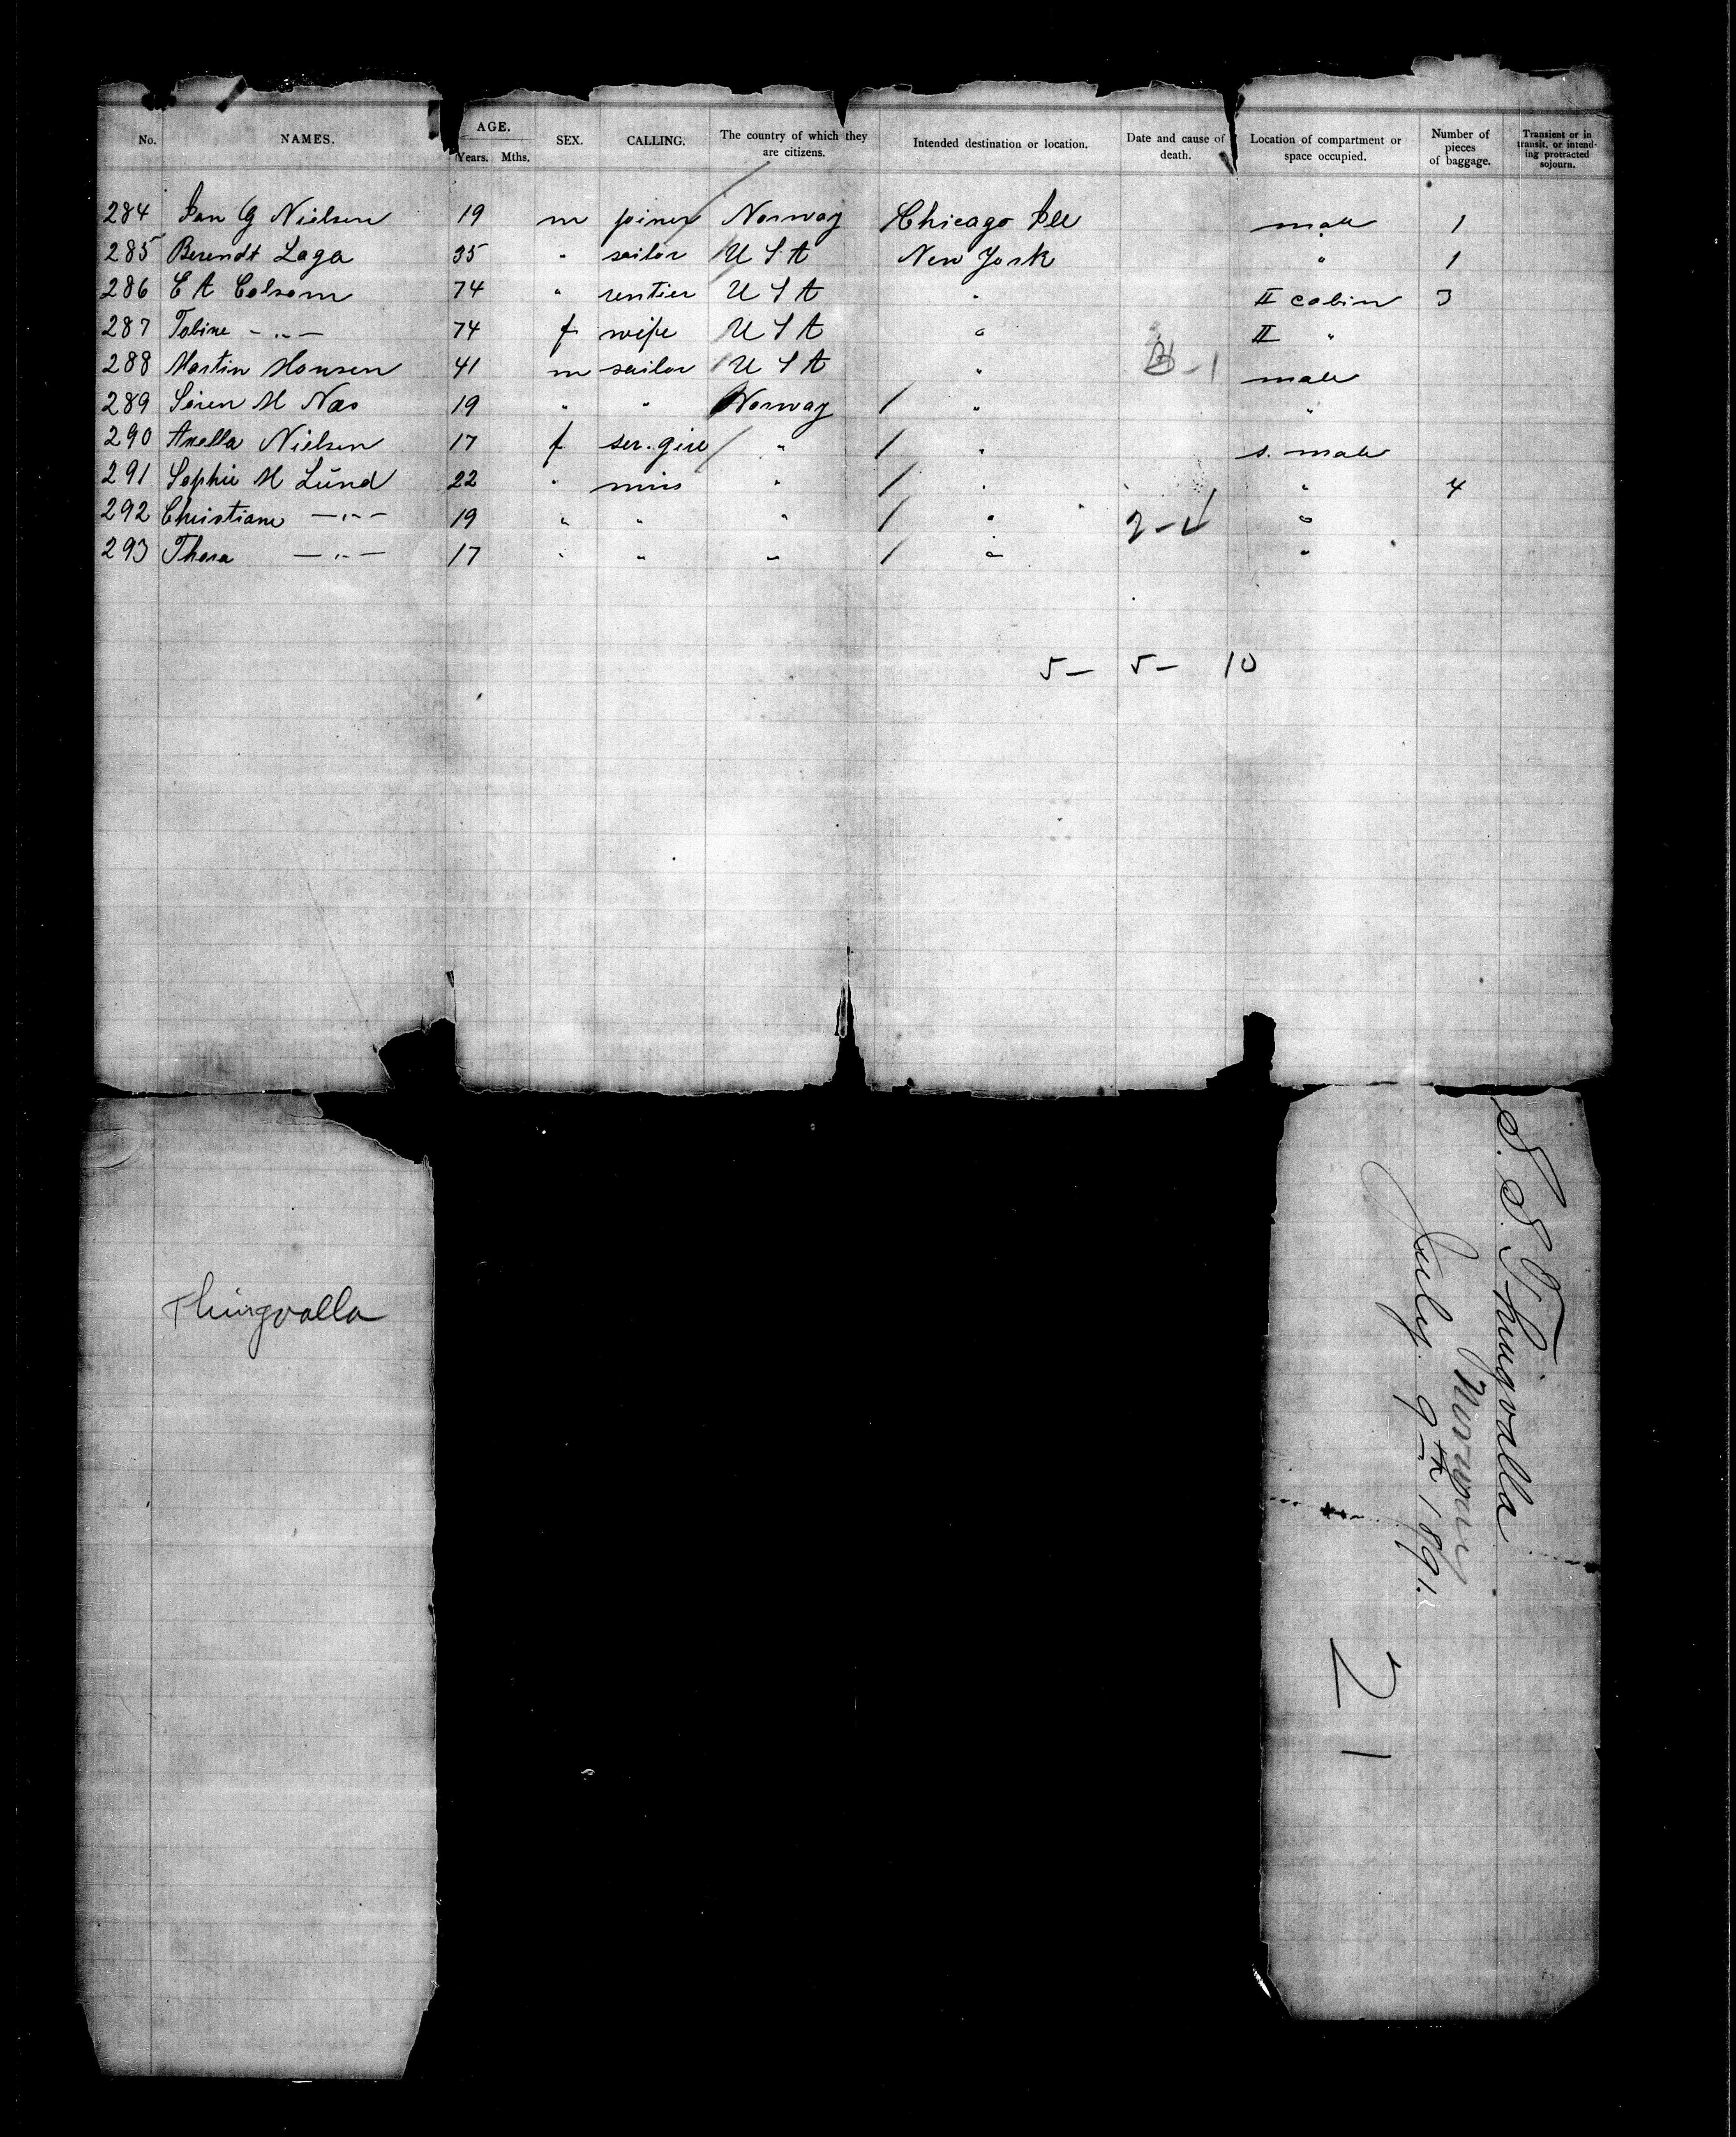 No. NAMES. AGE. Years. Mths. SEX. CALLING. The country of which they are citizens. Intended destination or location. Date and cause of death. Location of compartment or space occupied. Number of pieces of baggage. Transient or in transit, or intending protracted sojourn.
284 Jan G Nielsen 19 m joiner Norway Chicago Ill male 1
285 Berendt Laga 35 " sailor U S A New York " 1
286 E A Colsom 74 " rentier U S A " II cabin 3
287 Tobine - " - 74 f wife U S A " II "
288 Martin Hansen 41 m sailor U S A " male
289 Sören M Næs 19 " " Norway / " "
290 Axella Nielsen 17 f ser. girl " / " s. male
291 Sophie M Lund 22 " miss " / " " 4
292 Christiane - " - 19 " " " / " 2 - "
293 Thora - " - 17 " " " / " "
5 - 5 - 10
Thingvalla
S. S. Thingvalla
Norway
July 9th 1891.
21